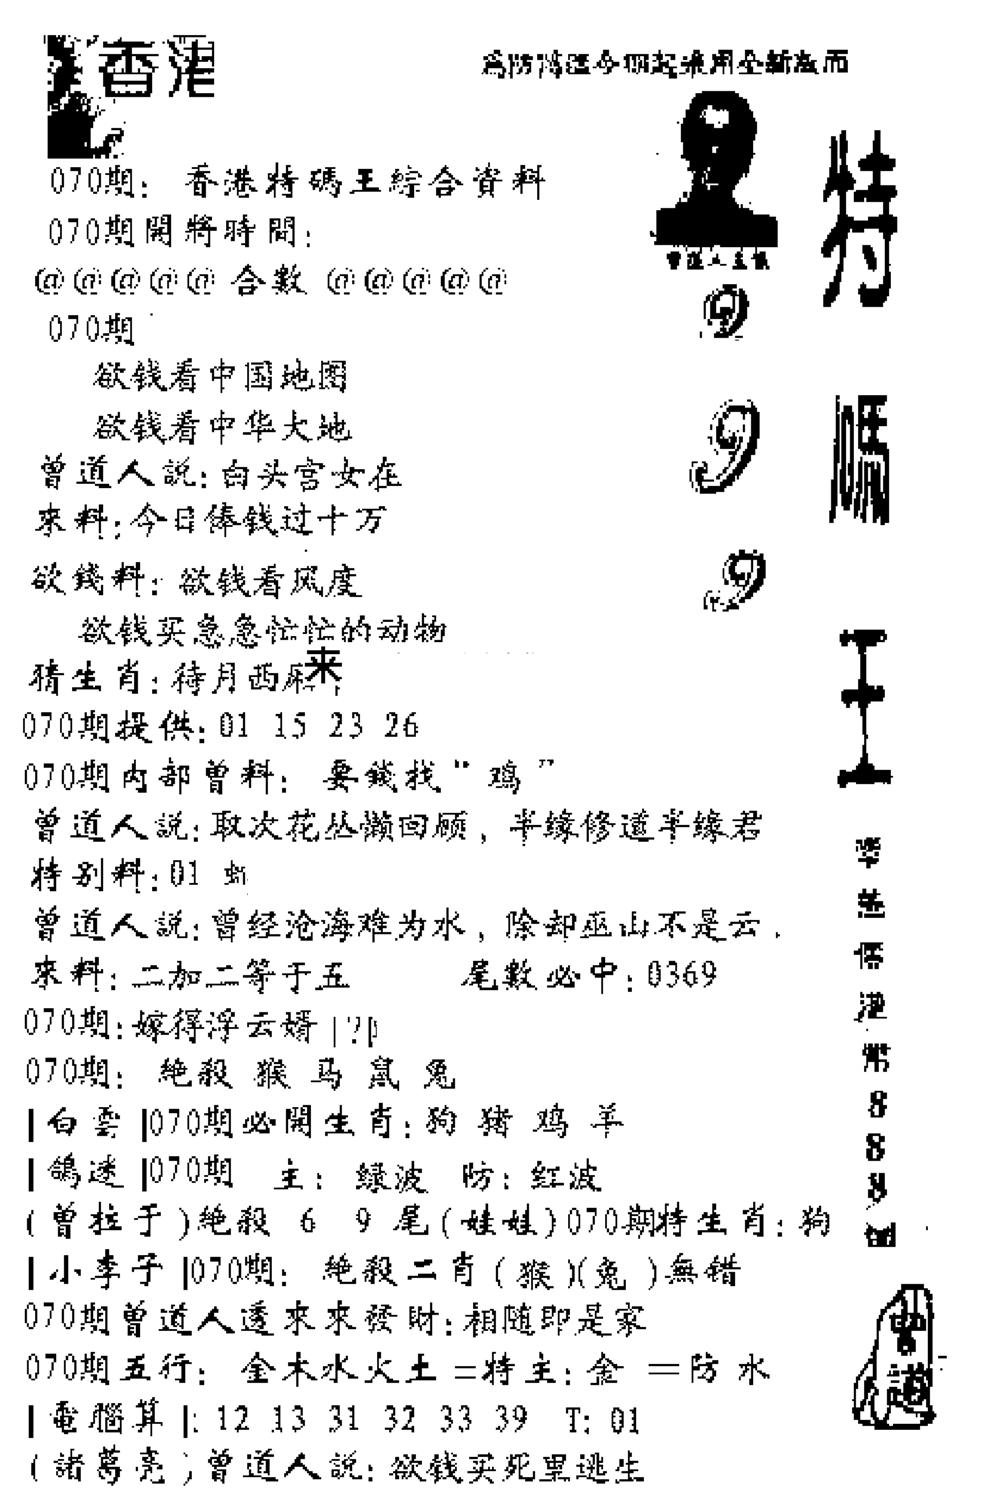 香港
為防濤滥今期起采用全新版面
070期: 香港特碼王綜合資料
070期開將時間:
@@@@@ 合數 @@@@@
070期
欲钱看中国地图
欲钱看中华大地
曾道人説:白头宫女在
來料:今日俸钱过十万
欲錢料: 欲钱看风度
欲钱买急急忙忙的动物
猜生肖:待月西厢
来
070期提供:01 15 23 26
070期内部曾料: 要錢找"鸡"
曾道人説:取次花丛懒回顾, 半缘修道半缘君
特别料:01
曾道人説:曾经沧海难为水, 除却巫山不是云.
來料:二加二等于五 尾數必中:0369
070期:嫁得浮云婿|?|
070期: 絶殺 猴 马 鼠 兔
|白雲|070期必開生肖:狗 猪 鸡 羊
|鴿迷|070期 主: 緑波 防: 红波
(曾拉于)绝殺 6 9 尾(娃娃)070期特生肖:狗
|小李子|070期: 絶殺二肖(猴)(兔)無错
070期曾道人透來來發財:相随即是家
070期五行: 金木水火土=特主:金 =防水
|電腦算|:12 13 31 32 33 39 T:01
(諸葛亮)曾道人説:欲钱买死里逃生
曾道人
9
9
9
特碼王
零售價港幣888圓
曾道